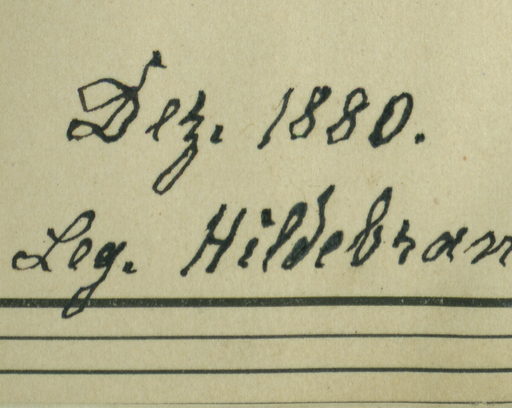 Dez. 1880.
Leg. Hildebran